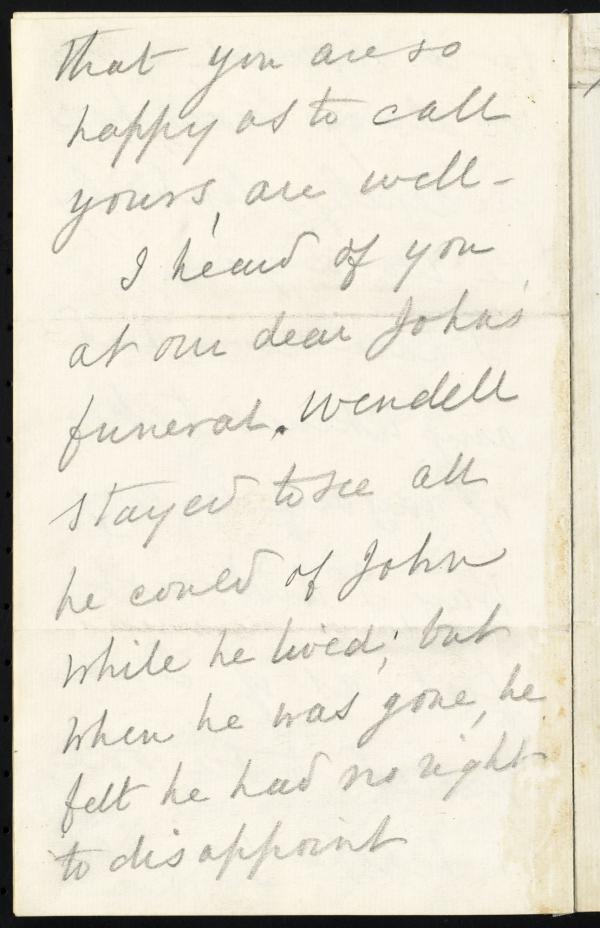 that you are so
happy as to call
yours, are well -
I heard of you
at our dear John's
funeral. Wendell
stayed to see all
he could of John
while he lived; but
when he was gone, he
felt he had no right
to disappoint